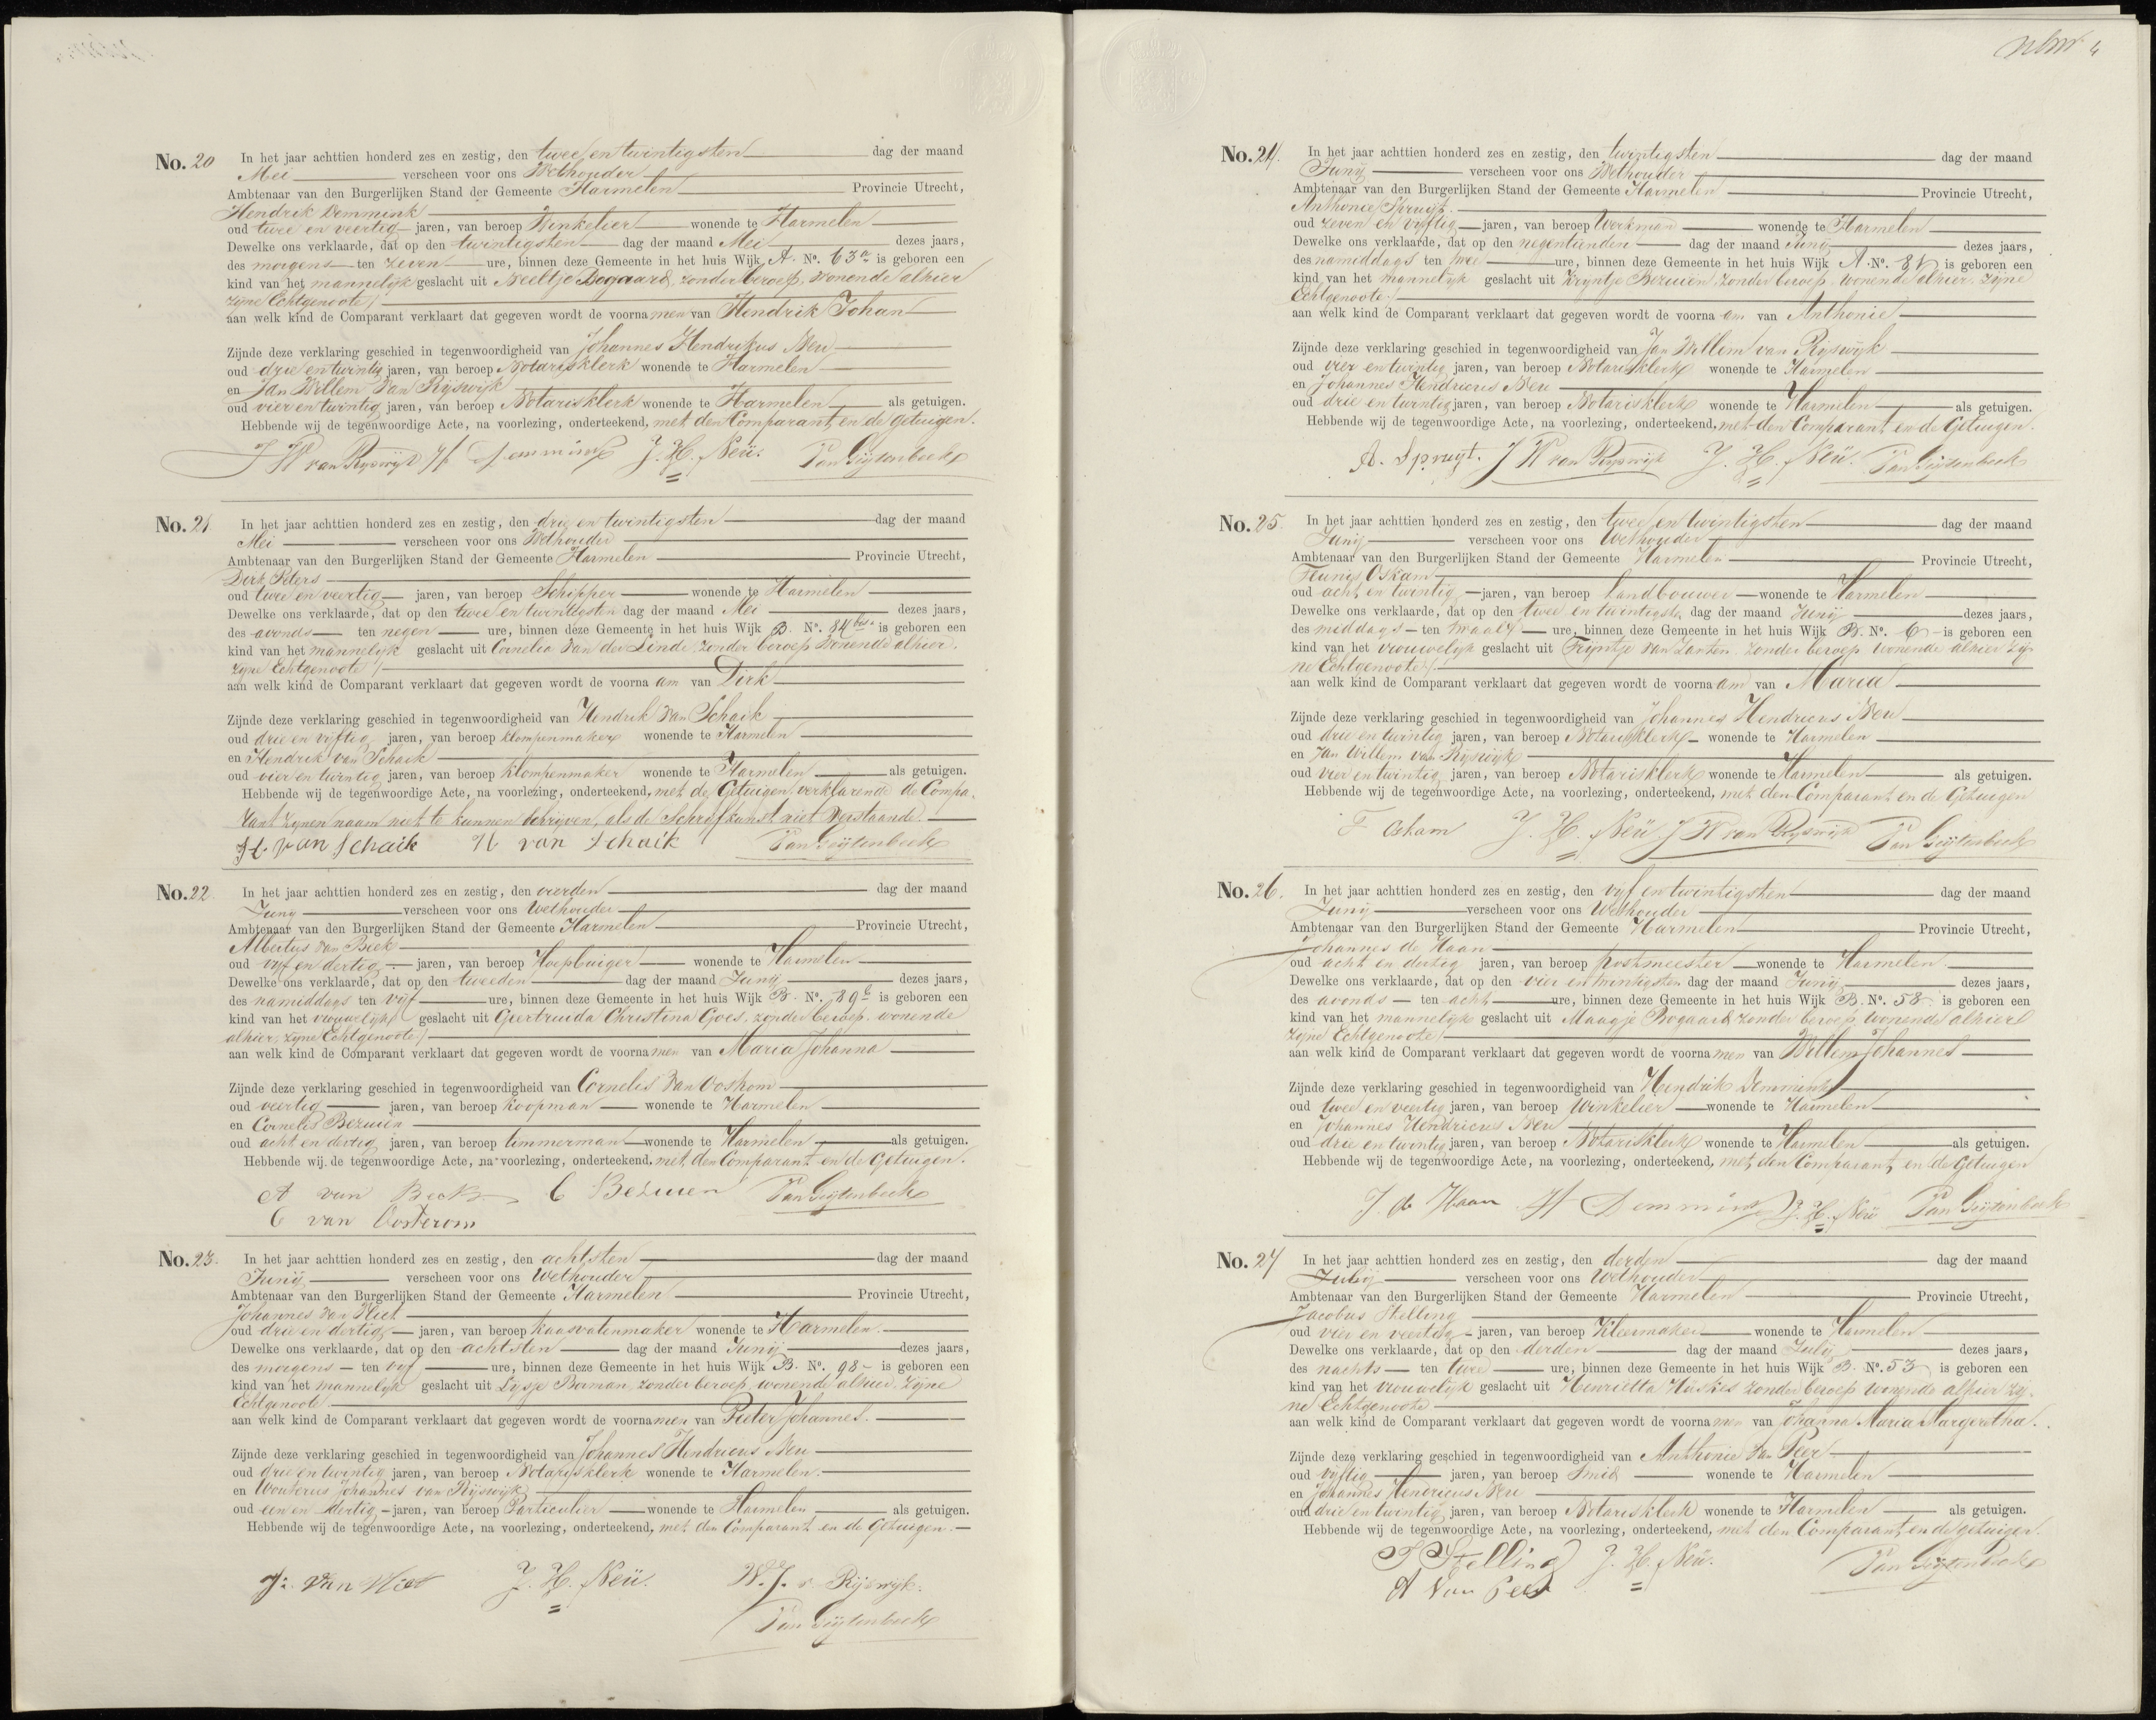 No. 20 In het jaar achttien honderd zes en zestig, den twee en twintigsten dag der maand
Mei verscheen voor ons Wethouder
Ambtenaar van den Burgerlijken Stand der Gemeente Harmelen Provincie Utrecht,
Hendrik Demmink
oud twee en veertig jaren, van beroep Winkelier wonende te Harmelen
Dewelke ons verklaarde, dat op den twintigsten dag der maand Mei dezes jaars,
des morgens ten zeven ure, binnen deze Gemeente in het huis Wijk A. No. 63a is geboren een
kind van het mannelijk geslacht uit Neeltje Bogaard, zonder beroep, wonende alhier
zijne Echtgenoote
aan welk kind de Comparant verklaart dat gegeven wordt de voornamen van Hendrik Johan
Zijnde deze verklaring geschied in tegenwoordigheid van Johannes Hendrikus Neu
oud drie en twintig jaren, van beroep Notarisklerk wonende te Harmelen
en Jan Willem van Rijswijk
oud vier en twintig jaren, van beroep Notarisklerk wonende te Harmelen als getuigen.
Hebbende wij de tegenwoordige Acte, na voorlezing, onderteekend, met den Comparant en de getuigen.
J W van Rijswijk H Demmink J. H. Neü. Van Geijtenbeek
No. 21 In het jaar achttien honderd zes en zestig, den drie en twintigsten dag der maand
Mei verscheen voor ons Wethouder
Ambtenaar van den Burgerlijken Stand der Gemeente Harmelen Provincie Utrecht,
Dirk Peters
oud twee en veertig jaren, van beroep Schipper wonende te Harmelen
Dewelke ons verklaarde, dat op den twee en twintigsten dag der maand Mei dezes jaars,
des avonds ten negen ure, binnen deze Gemeente in het huis Wijk B. No. 84bis. is geboren een
kind van het mannelijk geslacht uit Cornelia van der Linde zonder beroep wonende alhier,
zijne Echtgenoote
aan welk kind de Comparant verklaart dat gegeven wordt de voornaam van Dirk
Zijnde deze verklaring geschied in tegenwoordigheid van Hendrik van Schaik
oud drie en vijftig jaren, van beroep klompenmaker wonende te Harmelen
en Hendrik van Schaik
oud vier en twintig jaren, van beroep klompenmaker wonende te Harmelen als getuigen.
Hebbende wij de tegenwoordige Acte, na voorlezing, onderteekend, met de Getuigen verklarende de Compa-
rant zijnen naam niet te kunnen schrijven, als de Schrijfkunst niet Verstaande.
H. van Schaik H van Schaik Van Geijtenbeek
No. 22. In het jaar achttien honderd zes en zestig, den vierden dag der maand
Junij verscheen voor ons Wethouder
Ambtenaar van den Burgerlijken Stand der Gemeente Harmelen Provincie Utrecht,
Albertus van Beek
oud vijf en dertig jaren, van beroep Hoepbuiger wonende te Harmelen
Dewelke ons verklaarde, dat op den tweeden dag der maand Junij dezes jaars,
des namiddags ten vijf ure, binnen deze Gemeente in het huis Wijk B. No. 89b is geboren een
kind van het vrouwelijk geslacht uit Geertruida Christina Goes, zonder beroep, wonende
alhier, zijne Echtgenoote
aan welk kind de Comparant verklaart dat gegeven wordt de voornamen van Maria Johanna
Zijnde deze verklaring geschied in tegenwoordigheid van Cornelis van Oostrom
oud veertig jaren, van beroep koopman wonende te Harmelen
en Cornelis Bezuien
oud acht en dertig jaren, van beroep timmerman wonende te Harmelen als getuigen.
Hebbende wij de tegenwoordige Acte, na voorlezing, onderteekend, met den Comparant en de Getuigen.
A van Beek C Bezuien Van Geijtenbeek
C van Oosterom
No. 23. In het jaar achttien honderd zes en zestig, den achtsten dag der maand
Junij verscheen voor ons Wethouder
Ambtenaar van den Burgerlijken Stand der Gemeente Harmelen Provincie Utrecht,
Johannes van Vliet
oud drie en dertig jaren, van beroep kaasvatenmaker wonende te Harmelen.
Dewelke ons verklaarde, dat op den achtsten dag der maand Junij dezes jaars,
des morgens ten vijf ure, binnen deze Gemeente in het huis Wijk B. No. 98 is geboren een
kind van het mannelijk geslacht uit Lijsje Borman, zonder beroep, wonende alhier, Zijne
Echtgenoote.
aan welk kind de Comparant verklaart dat gegeven wordt de voornamen van Pieter Johannes.
Zijnde deze verklaring geschied in tegenwoordigheid van Johannes Hendricus Neu
oud drie en twintig jaren, van beroep Notarisklerk wonende te Harmelen.
en Wouterus Johannes van Rijswijk
oud een en dertig jaren, van beroep Particulier wonende te Harmelen als getuigen.
Hebbende wij de tegenwoordige Acte, na voorlezing, onderteekend, met den Comparant en de Getuigen.
J: van Vliet J. H. Neü. W. J. v. Rijswijk.
Van Geijtenbeek
4
No. 24. In het jaar achttien honderd zes en zestig, den twintigsten dag der maand
Junij verscheen voor ons Wethouder
Ambtenaar van den Burgerlijken Stand der Gemeente Harmelen Provincie Utrecht,
Anthonie Spruijt.
oud zeven en vijftig jaren, van beroep Werkman wonende te Harmelen
Dewelke ons verklaarde, dat op den negentienden dag der maand Junij dezes jaars,
des namiddags ten twee ure, binnen deze Gemeente in het huis Wijk A. No. 81 is geboren een
kind van het mannelijk geslacht uit Krijntje Bezuien, zonder beroep, wonende alhier, zijne
Echtgenoote.
aan welk kind de Comparant verklaart dat gegeven wordt de voornaam van Anthonie
Zijnde deze verklaring geschied in tegenwoordigheid van Jan Willem van Rijswijk
oud vier en twintig jaren, van beroep Notarisklerk wonende te Harmelen
en Johannes Hendricus Neu
oud drie en twintig jaren, van beroep Notarisklerk wonende te Harmelen als getuigen.
Hebbende wij de tegenwoordige Acte, na voorlezing, onderteekend, met den Comparant en de Getuigen.
A. Spruyt. J W van Rijswijk J. H. Neü. Van Geijtenbeek
No. 25. In het jaar achttien honderd zes en zestig, den twee en twintigsten dag der maand
Junij verscheen voor ons Wethouder
Ambtenaar van den Burgerlijken Stand der Gemeente Harmelen Provincie Utrecht,
Teunis Oskam
oud acht en twintig jaren, van beroep Landbouwer wonende te Harmelen
Dewelke ons verklaarde, dat op den twee en twintigste dag der maand Junij dezes jaars,
des middags ten twaalf ure, binnen deze Gemeente in het huis Wijk B. No. 6 is geboren een
kind van het vrouwelijk geslacht uit Trijntje van Zanten zonder beroep wonende alhier zij-
ne Echtgenoote
aan welk kind de Comparant verklaart dat gegeven wordt de voornaam van Maria
Zijnde deze verklaring geschied in tegenwoordigheid van Johannes Hendricus Neu
oud drie en twintig jaren, van beroep Notarisklerk wonende te Harmelen
en Jan Willem van Rijswijk
oud vier en twintig jaren, van beroep Notarisklerk wonende te Harmelen als getuigen.
Hebbende wij de tegenwoordige Acte, na voorlezing, onderteekend, met den Comparant en de Getuigen
T Oskam J. H. Neü. J W van Rijswijk Van Geijtenbeek
No. 26. In het jaar achttien honderd zes en zestig, den vijf en twintigsten dag der maand
Junij verscheen voor ons Wethouder
Ambtenaar van den Burgerlijken Stand der Gemeente Harmelen Provincie Utrecht,
Johannes de Haan
oud acht en dertig jaren, van beroep postmeester wonende te Harmelen.
Dewelke ons verklaarde, dat op den vier en twintigsten dag der maand Junij dezes jaars,
des avonds ten acht ure, binnen deze Gemeente in het huis Wijk B. No. 58 is geboren een
kind van het mannelijk geslacht uit Maagje Bogaard zonder beroep wonende alhier
zijne Echtgenoote
aan welk kind de Comparant verklaart dat gegeven wordt de voornamen van Willem Johannes
Zijnde deze verklaring geschied in tegenwoordigheid van Hendrik Demmink
oud twee en veertig jaren, van beroep Winkelier wonende te Harmelen
en Johannes Hendricus Neu
oud drie en twintig jaren, van beroep Notarisklerk wonende te Harmelen als getuigen.
Hebbende wij de tegenwoordige Acte, na voorlezing, onderteekend, met den Comparant en de Getuigen
J. de Haan H Demmink J. H. Neü Van Geijtenbeek
No. 27 In het jaar achttien honderd zes en zestig, den derden dag der maand
Julij verscheen voor ons Wethouder
Ambtenaar van den Burgerlijken Stand der Gemeente Harmelen Provincie Utrecht,
Jacobus Stelling
oud vier en veertig jaren, van beroep Kleermaker wonende te Harmelen
Dewelke ons verklaarde, dat op den derden dag der maand Julij dezes jaars,
des nachts ten twee ure, binnen deze Gemeente in het huis Wijk B. No. 53 is geboren een
kind van het vrouwelijk geslacht uit Henrietta Huskes zonder beroep wonende alhier zij-
ne Echtgenoote
aan welk kind de Comparant verklaart dat gegeven wordt de voornamen van Johanna Maria Margeretha.
Zijnde deze verklaring geschied in tegenwoordigheid van Anthonie van Peer
oud vijftig jaren, van beroep Smid wonende te Harmelen
en Johannes Hendricus Neu
oud drie en twintig jaren, van beroep Notarisklerk wonende te Harmelen als getuigen.
Hebbende wij de tegenwoordige Acte, na voorlezing, onderteekend, met den Comparant en de getuigen.
J Stelling J. H. Neü. Van Geijtenbeek
A van Peer